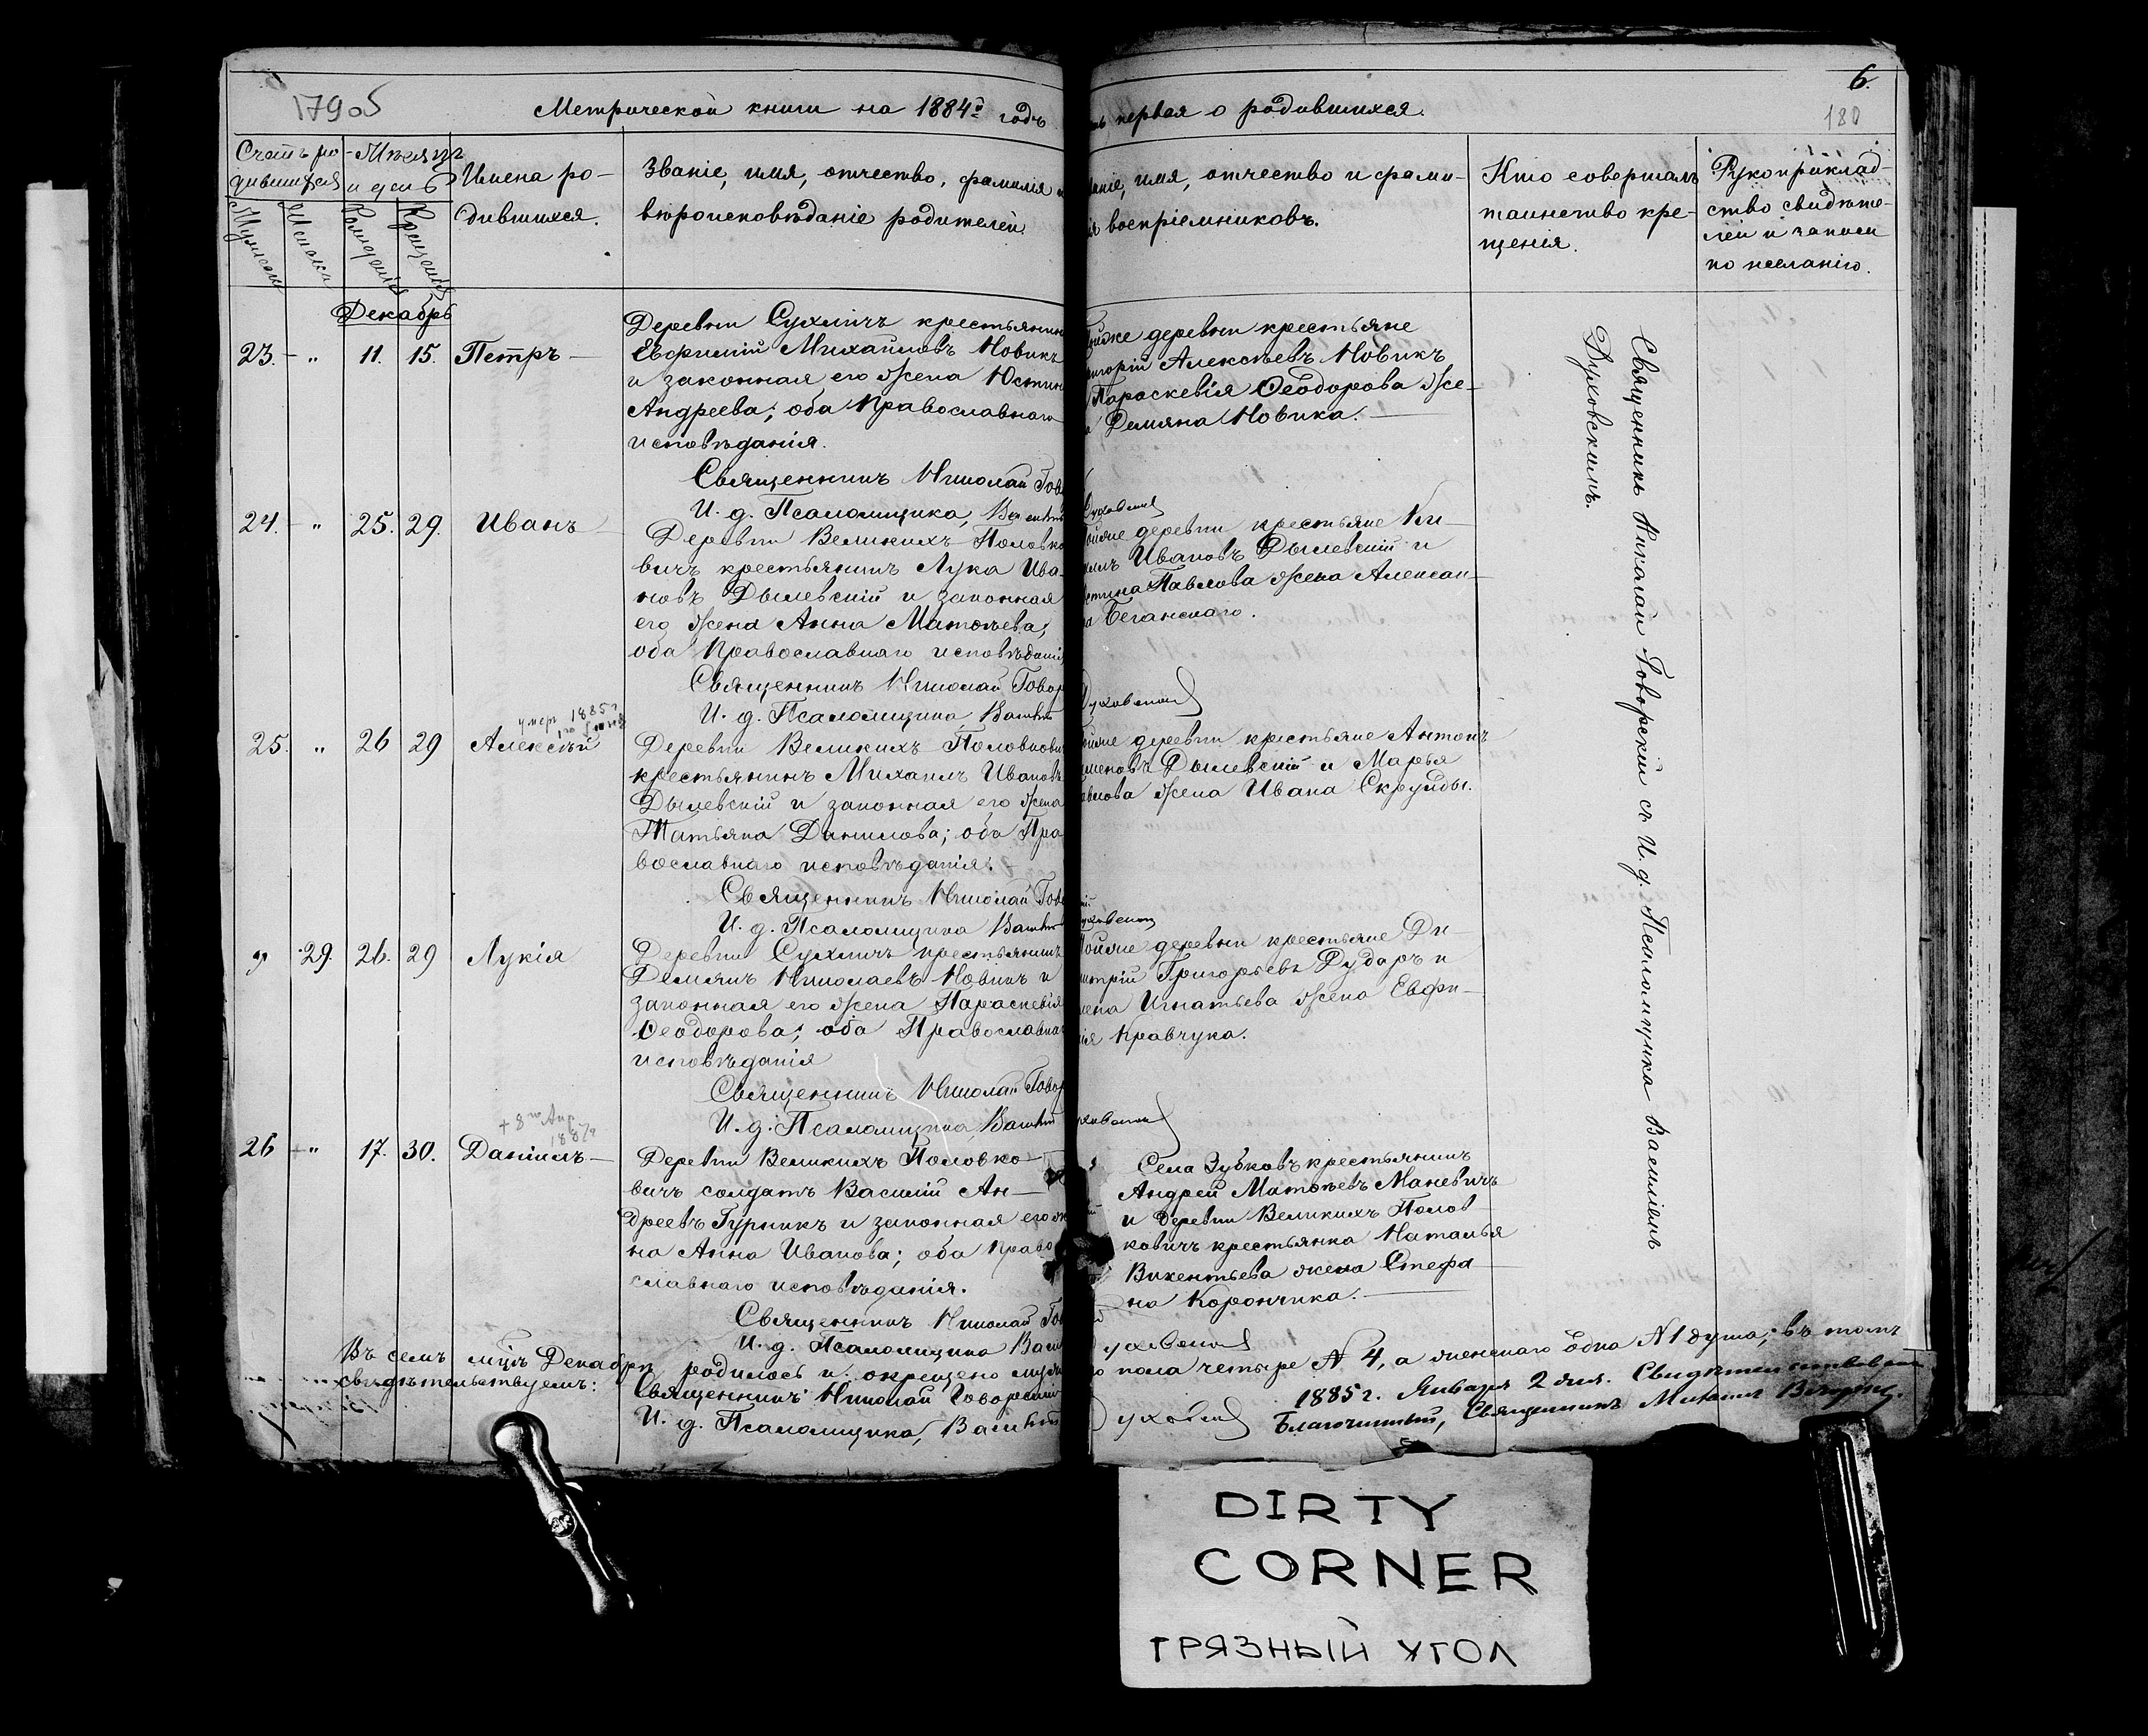 179об
6.
180
Метрической книги на 1884й годъ
первая о родившихся.
Счетъ ро-
дившихся
Мужеска
Женска
Мѣсяцъ
и день
Рожденія
Крещенія
Имена ро-
дившихся.
Званіе, имя, отчество, фамилія и
вѣроисповѣданіе родителей
имя, отчество и фами-
воспріемниковъ.
Кто совершалъ
таинство кре-
щенія.
Рукоприклад-
ство свидѣте-
лей и записи
по желанію.
Декабрь
23. - " 11. 15. Петръ -
Деревни Сухличъ крестьянинъ
Евфимій Михайловъ Новикъ
и законная его жена Юстин
Андреева; оба Православнаго
исповѣданія.
Священникъ Николай Гов
И. д. Псаломщика,
же деревни крестьяне
игорій Алексѣевъ Новикъ
Параскевія Ѳеодорова же-
Демяна Новика.
24. - " 25. 29. Иванъ -
Деревни Великихъ Половко
вичъ крестьянинъ Лука Ива-
новъ Дылевскій и законная
его жена Анна Матѳѣева;
оба Православнаго исповѣданія
Священникъ Николай Говор
И. д. Псаломщика
Духовскій
деревни крестьяне Ки-
Ивановъ Дылевскій и
стина Павлова жена Алексан-
Беганскаго.
умер 1885г
25. " 26 29 Алексѣй
Деревни Великихъ Половкови
крестьянинъ Михаилъ Ивановъ
Дылевскій и законная его жена
Татьяна Данилова; оба Пра
вославнаго исповѣданія. -
Священникъ Николай Гов
И. д. Псаломщика
уховской
деревни крестьяне Антонъ
меновъ Дылевскій и Марья
авлова жена Ивана Скрунды.
" 29. 26. 29 Лукія
Деревни Сухличъ крестьянинъ
Демянъ Николаевъ Новикъ и
законная его жена Параскевія
Ѳеодорова; оба Православна
исповѣданія
Священникъ Николай Говор
И. д. Псаломщика
уховской
деревни крестьяне Ди-
митрій Григорьевъ Рударъ и
лена Игнатьева жена Евфи-
мія Кравчука.
уховской
+ 8го Апр
1887г
26 - " 17. 30. Даніилъ -
Деревни Великихъ Половко-
вичъ солдатъ Василій Ан-
дреевъ Гурникъ и законная его же
на Анна Иванова; оба Право
славнаго исповѣданія.
Священникъ Николай Гов
И. д. Псаломщика Васил
Села Зубковъ крестьянинъ
Андрей Матѳѣевъ Маневичъ
и деревни Великихъ Полов-
ковичъ крестьянка Наталья
Викентьева жена Стефа-
на Корончика. -
уховской
Священникъ Николай Говорскій съ И. д. Псаломщика Василіемъ
Духовскимъ.
Въ семъ мцѣ Декабрѣ родилось и окрещено муж
пола четыре № 4, а женскаго одна № 1 душа; въ томъ
свидѣтельствуемъ:
Священникъ Николай Говорскій
И. д. Псаломщика, Василій
Духовской
1885г. Января 2 дня. Свидѣтельствовалъ
Благочинный, Священникъ Михаилъ
DIRTY
CORNER
ГРЯЗНЫЙ УГОЛ